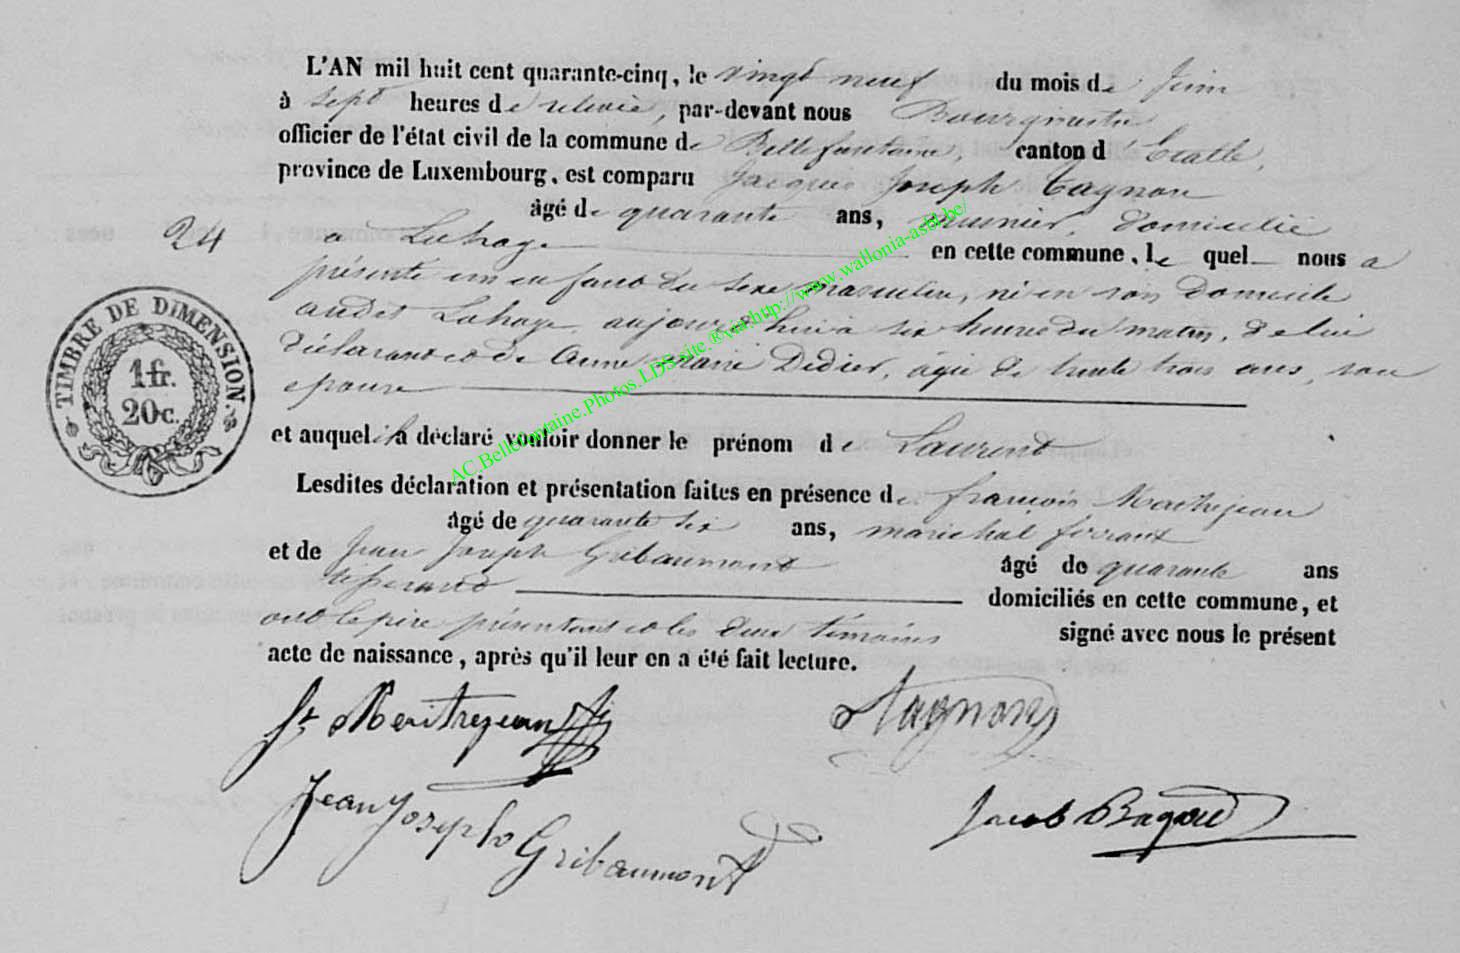 L'AN mil huit cent quarante-cinq, le vingt neuf du mois de Juin
à sept heures de relevée, par-devant nous Bourgmestre
officier de l'état civil de la commune de Bellefontaine, canton d'Etalle,
province de Luxembourg, est comparu Jacques Joseph Tagnon
âgé de quarante ans, meunier, domicilié
24 à Lahage en cette commune, lequel nous a
présenté un enfant du sexe masculin, né en son domicile
audit Lahage, aujourd'hui à six heures du matin, de lui
déclarant et de Anne Marie Didier, agée de trente trois ans, son
epouse
et auquel il a déclaré vouloir donner le prénom de Laurent
Lesdites déclaration et présentation faites en présence de françois
âgé de quarante six ans, marechal ferrant
et de Jean Joseph Gribaumont âgé de quarante ans
tisserand domiciliés en cette commune, et
ont le père présentant et les deux témoins signé avec nous le présent
acte de naissance, après qu'il leur en a été fait lecture.
TIMBRE DE DIMENSION.
1 fr.
20 c.
AC.Bellefontaine.Photos.LDS.site.®via.http://www.wallonia-asbl.be/
Tagnon
Jean Joseph Gribaumont
Jacob